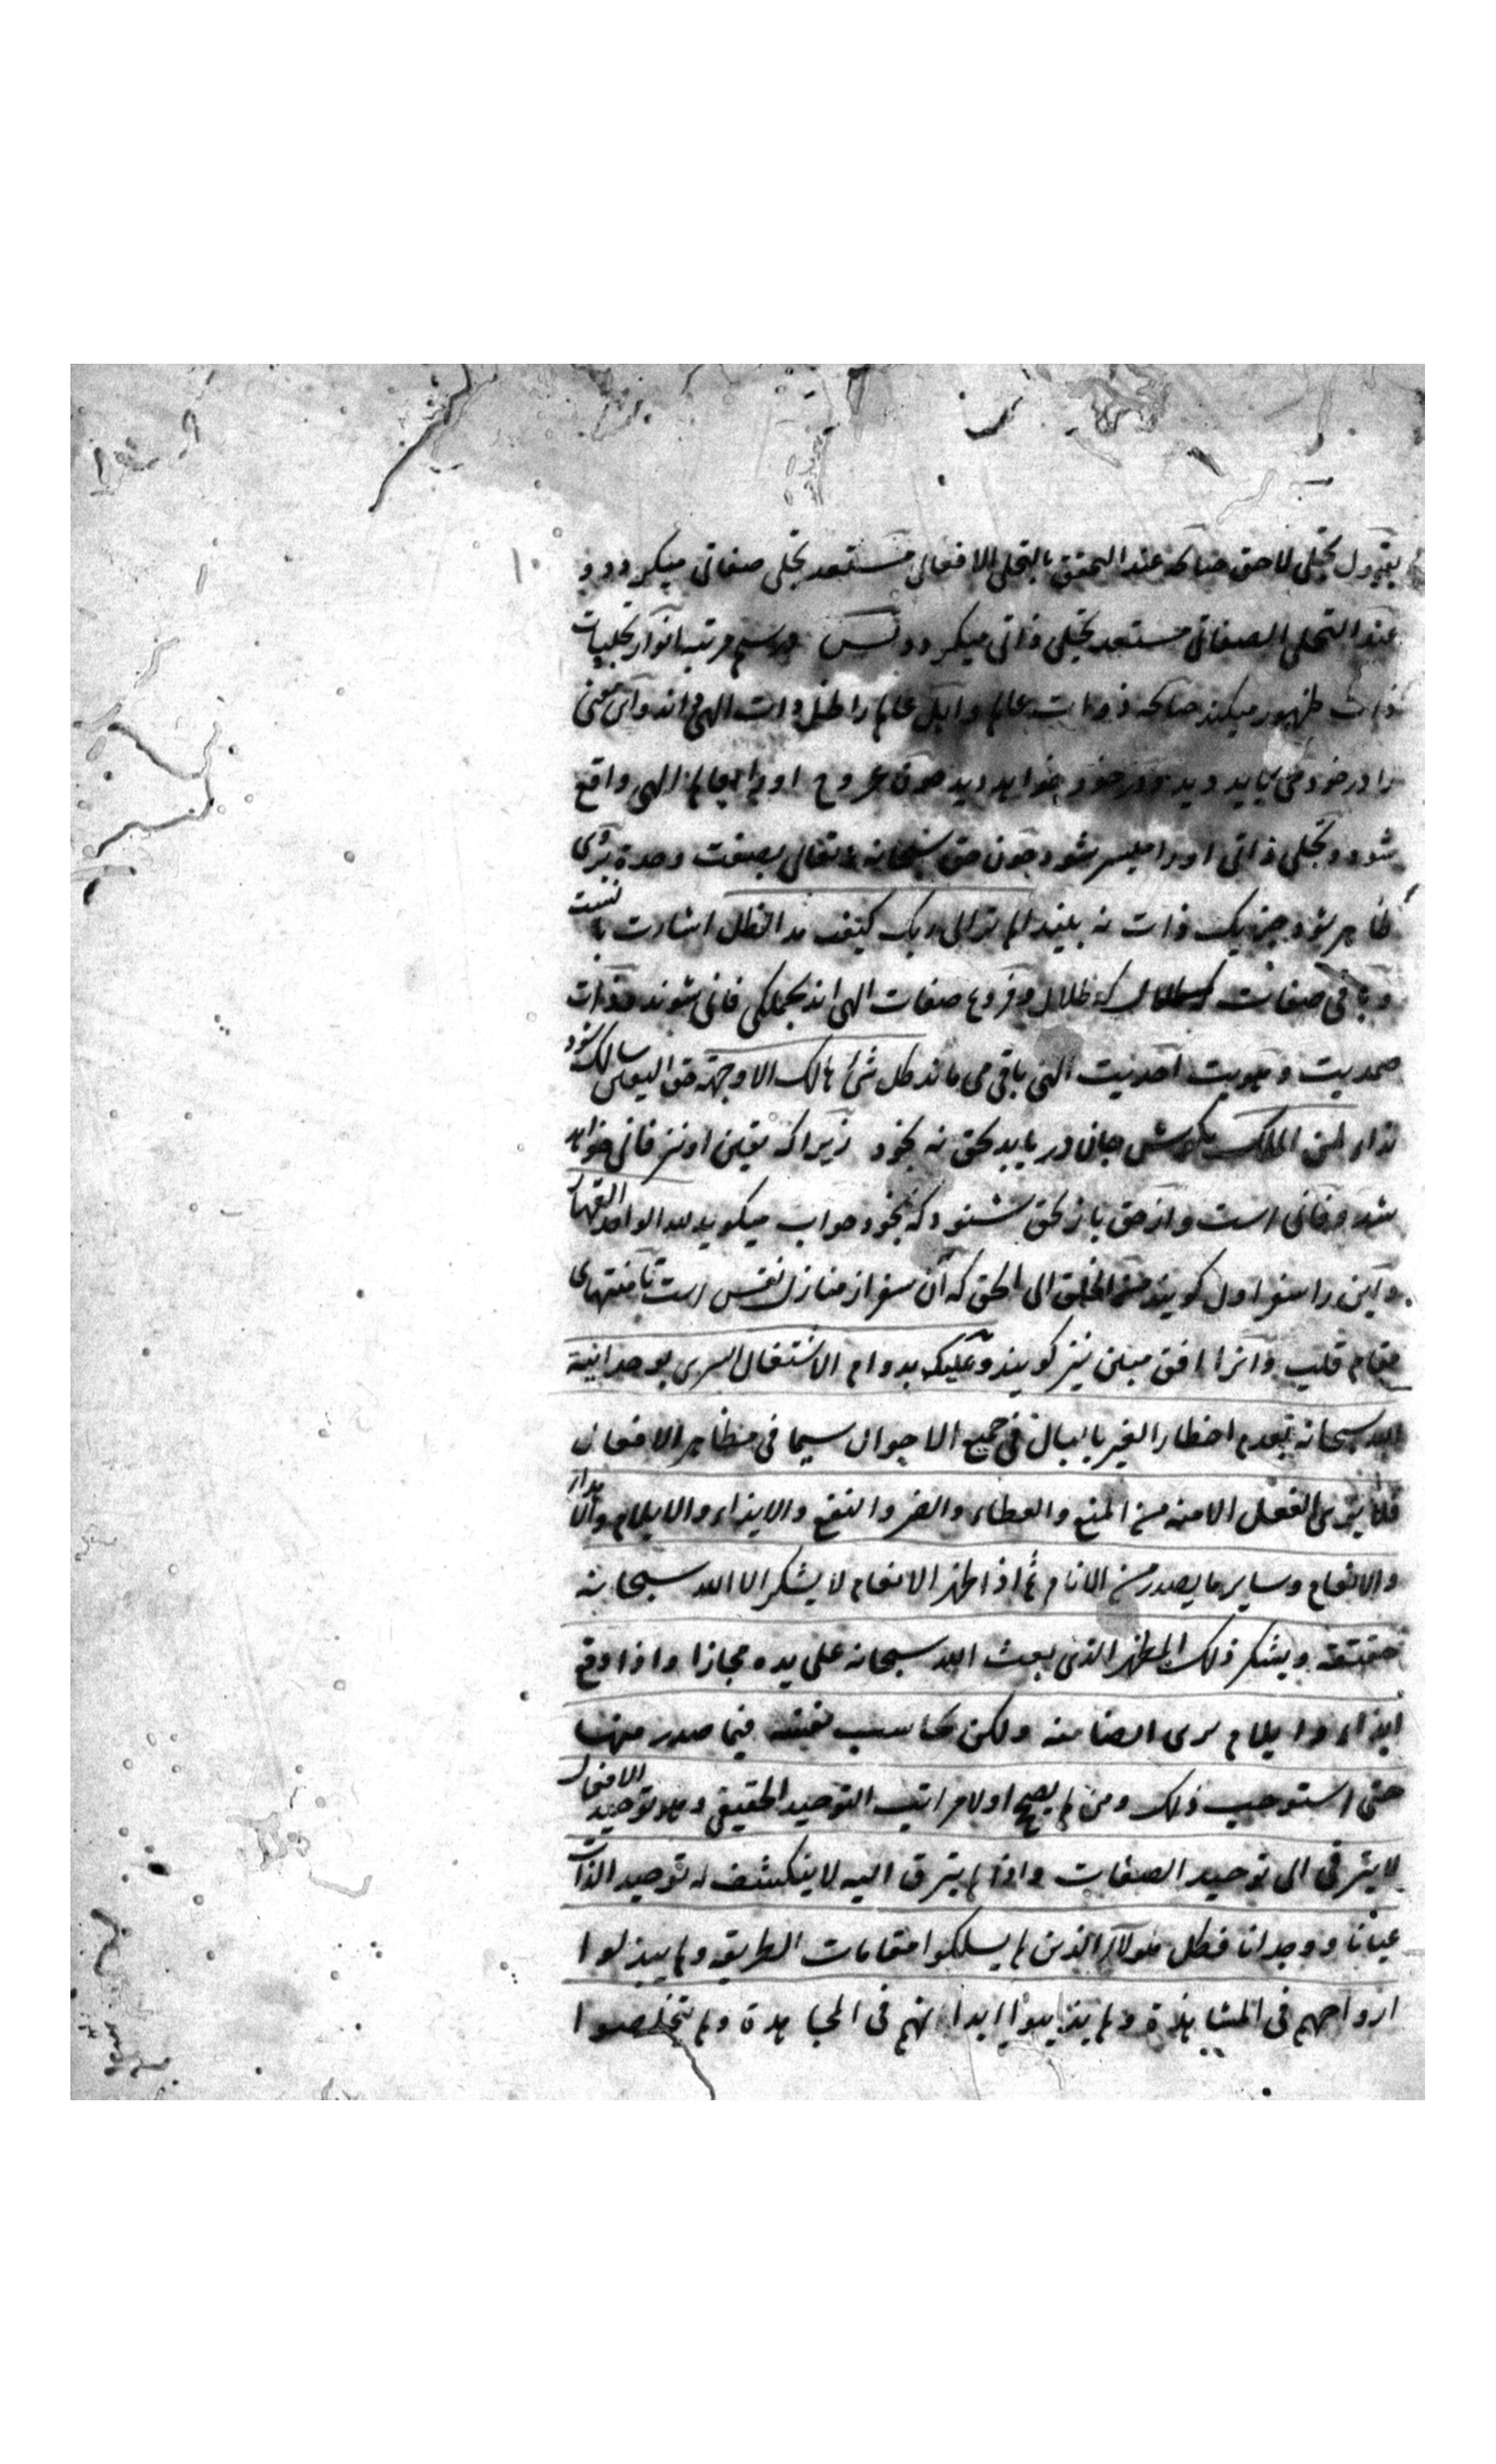 بقبول تجلی لاحق چنانکه عند التحقق بالتجلی الافعالی مستعد تجلی صفاتی میکردد و
عند التجلی الصفاتی مستعد تجلی ذاتی میکردد پس مرتبه انوار تجلیات
ذات ظهور میکند چنانکه ذوات عالم و اهل عالم را ظل ذات الهی داند و این معنی
را در خود می باید دید و در خود خواهد دید چون عروج او در عالم الهی واقع
شود و تجلی ذاتی او را میسر شود چون حق سبحانه و تعالی بصفت وحدة بروی
ظاهر شود جز یک ذات نه بیند الم تر الی ربک کیف مد الظل اشارت با نست
و باقی صفات که ظلال و فروع صفات الهی اند بجملکی فانی شوند و ذات
صمدیت و هویت احدیت الهی باقی می ماند کل شئ هالک الا وجهه حق الیقین سالک شود
ندا لمن الملک بکوش جان در یابد بحق نه بخود زیرا که تعین او نیز فانی خواهد
شد و فانی است و از حق باز بحق شنود که نه بخود جواب میکوید لله الواحد القهار
و این را سفر اول کویند من الخلق الی الحق که آن سفر از منازل نفس است تا منتهای
مقام قلب و انرا افق مبین نیز کویند و علیک بدوام الاشتغال السری بوحدانیة
الله سبحانه بعدم اخطار الغیر بالبال فی جمیع الاحوال سیما فی مظاهر الافعال
فلا یری الفعل الا منه من المنع والعطاء والضر والنفع والایذاء والایلام و
والانعام وسایر ما یصدر من الانام ثم اذا ظهر الانعام لا یشکر الا الله سبحانه
حقیقة ویشکر ذلک المظهر الذی بعث الله سبحانه علی یده مجازا واذا وقع
ایذاء وایلام یری ایضا منه ولکن یحاسب نفسه فیما صدر منها
حتی استوجب ذلک ومن لم یصح اولا مراتب التوحید الحقیقی وهو توحید الافعال
لا یترقی الی توحید الصفات واذا لم یترق الیه لا ینکشف له توحید الذات
عیانا ووجدانا فکل هولاء الذین لم یسلکوا مقامات الطریقه ولم یبذلوا
ارواحهم فی المشاهدة ولم یذیبوا ابدانهم فی المجاهدة ولم یتخلصوا